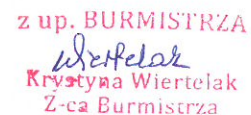 z up. BURMISTRZA
Wiertelak
Krystyna Wiertelak
Z-ca Burmistrza